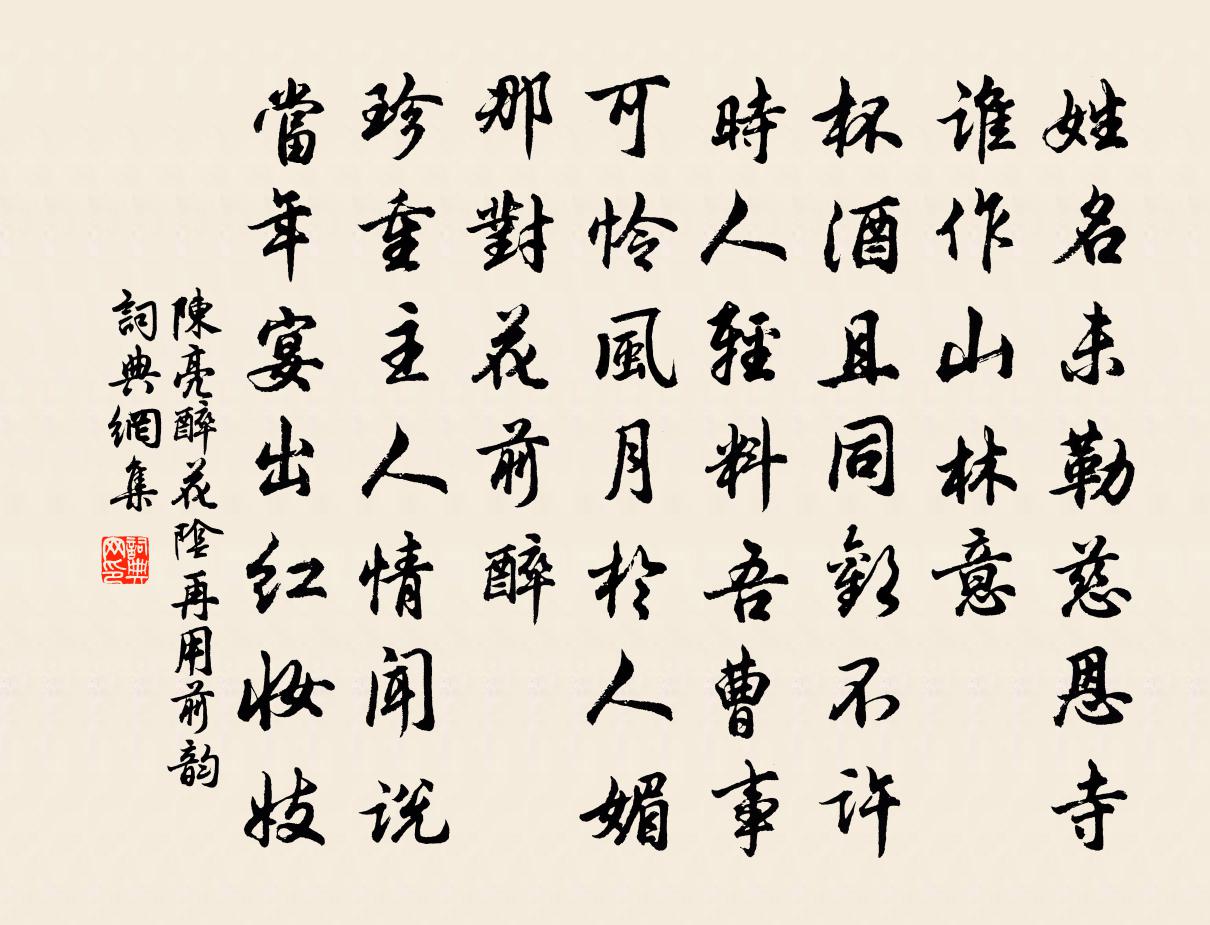 姓名未勒慈恩寺
誰作山林意
杯酒且同歡不許
時人輕料吾曹事
可怜風月於人媚
那對花前醉
珍重主人情聞説
當年宴出红妝妓
陳亮醉花陰再用前韵
詞典網集
詞典
网印